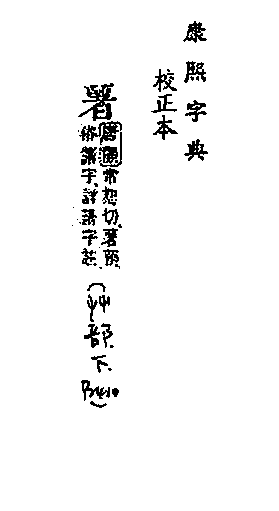 康熙字典
校正本
署
唐韻常恕切署預
俗藷字詳藷字註
(艸部
下